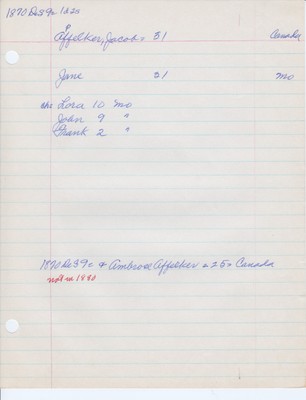 1870 DeS 9c 1220
Affelker, Jacob = 31 Canada
Jane 31 Mo
chs Lora 10 Mo
John 9 "
Frank 2 "
1870 DeS 9c & Ambrose Affelker = 25 = Canada
not in 1880